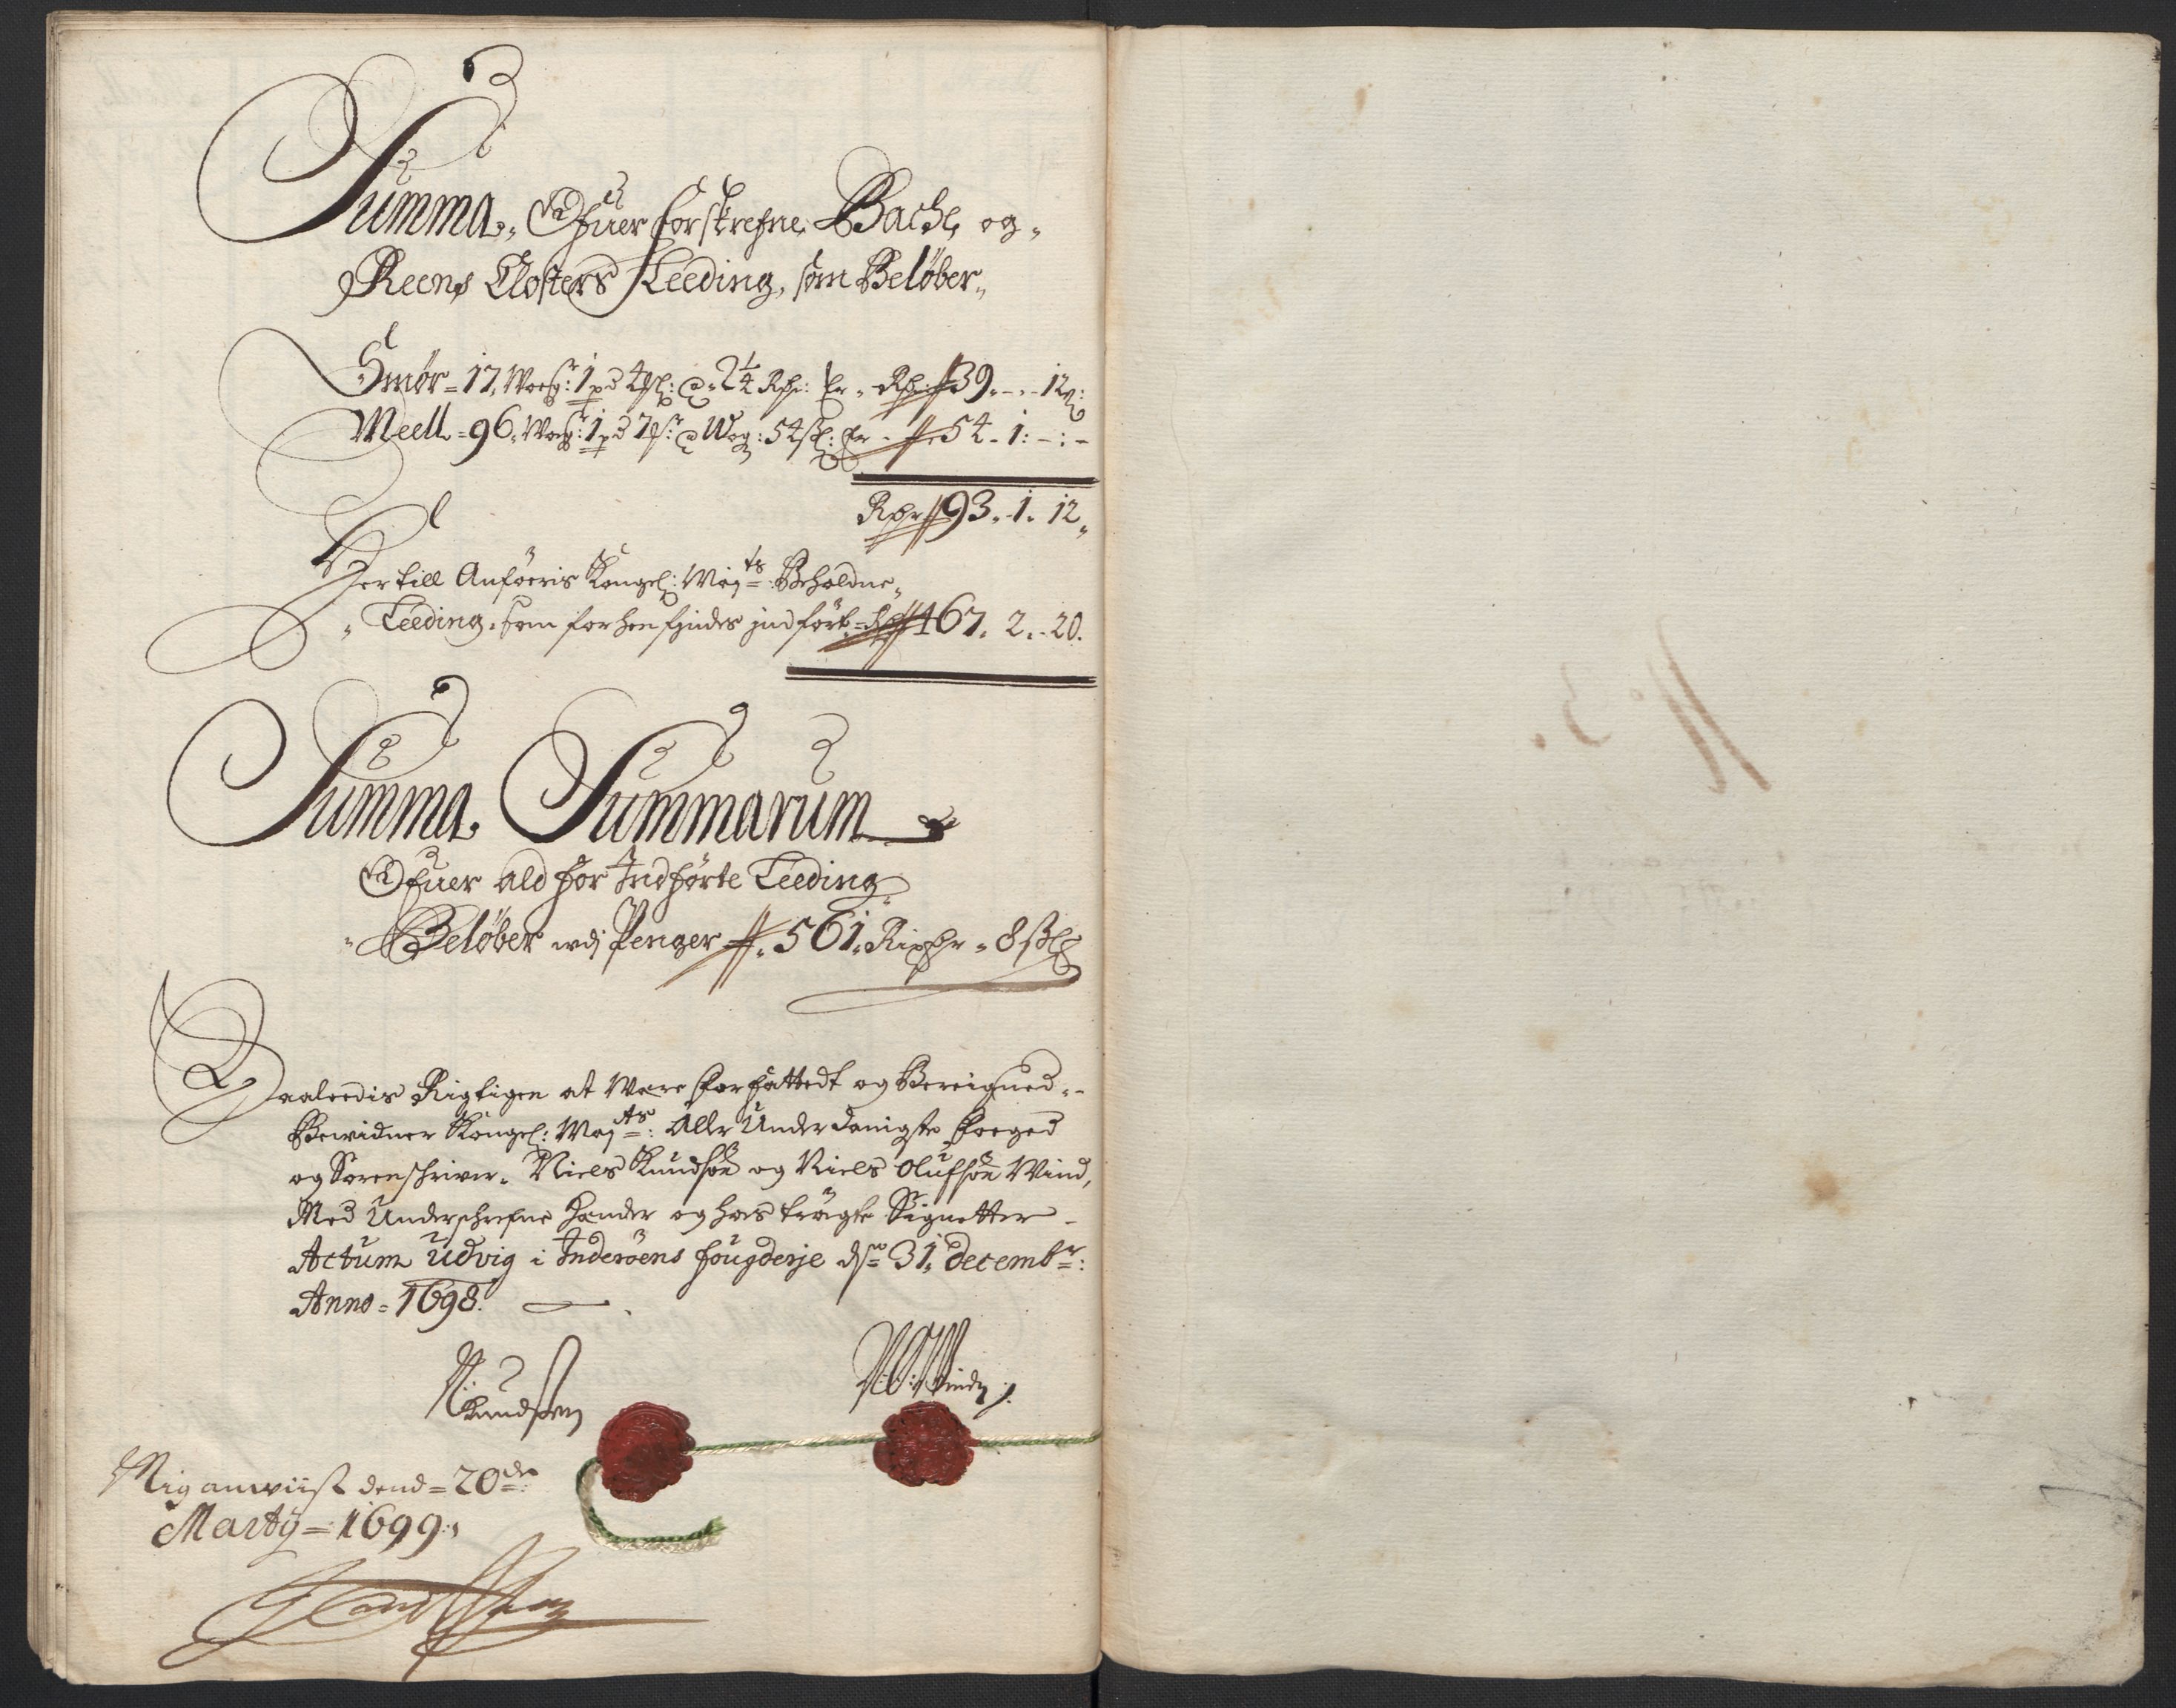 Summa, Ofuer forskrefne Bache og
Reens Closters Leeding, som Beløber
Smør = 17, Woger: 1 pd 4 : a 2¼ Rdr: Er - Rdr 39 - - 12
Meell = 96, Woger: 1 pd 7 : a Wog: 54 sk: Er - 54 - 1: - : -
Rdr 93. 1. 12
Hertill Anføeris Kongel: Maj:ts Beholdne
Leeding, som forhen findes indført 467. 2. 20.
Summa Summarum
Ofuer ald for Indførte Leeding
Beløber udj Penger 561. Rixdr 8 sk
Saaledis Rigtigen at Were forfattedt og Bereigned
Bewidner Kongel: Maj:ts: Aller Underdanigste Foeged
og Sorenschriver. Niels Knudsøn og Niels Olufsøn Wind,
Med Underschrefne Hænder og hos trøgte Signetter
Actum Udvig i Inderøens fougderje dn 31, decembr:
Anno = 1698.
N: Knudsen
NOWind
Mig anwiist dend = 20de:
Marty = 1699
N: 3.